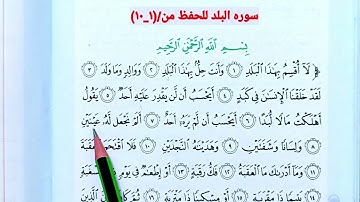 سوره البلد للحفظ من/(١_١٠)
بِسْمِ اللَّهِ الرَّحْمَٰنِ الرَّحِيمِ
﴿ لَا أُقْسِمُ بِهَٰذَا الْبَلَدِ ١ وَأَنتَ حِلٌّ بِهَٰذَا الْبَلَدِ ٢ وَوَالِدٍ وَمَا وَلَدَ ٣
لَقَدْ خَلَقْنَا الْإِنسَانَ فِي كَبَدٍ ٤ أَيَحْسَبُ أَن لَّن يَقْدِرَ عَلَيْهِ أَحَدٌ ٥ يَقُولُ
أَهْلَكْتُ مَالًا لُّبَدًا ٦ أَيَحْسَبُ أَن لَّمْ يَرَهُ أَحَدٌ ٧ أَلَمْ نَجْعَل لَّهُ عَيْنَيْنِ
٨ وَلِسَانًا وَشَفَتَيْنِ ٩ وَهَدَيْنَاهُ النَّجْدَيْنِ ١٠ فَلَا اقْتَحَمَ الْعَقَبَةَ
١١ وَمَا أَدْرَاكَ مَا الْعَقَبَةُ ١٢ فَكُّ رَقَبَةٍ ١٣ أَوْ إِطْعَامٌ فِي يَوْمٍ ذِي مَسْغَبَةٍ
١٤ يَتِيمًا ذَا مَقْرَبَةٍ ١٥ أَوْ مِسْكِينًا ذَا مَتْرَبَةٍ ١٦ ثُمَّ كَانَ مِنَ الَّذِينَ